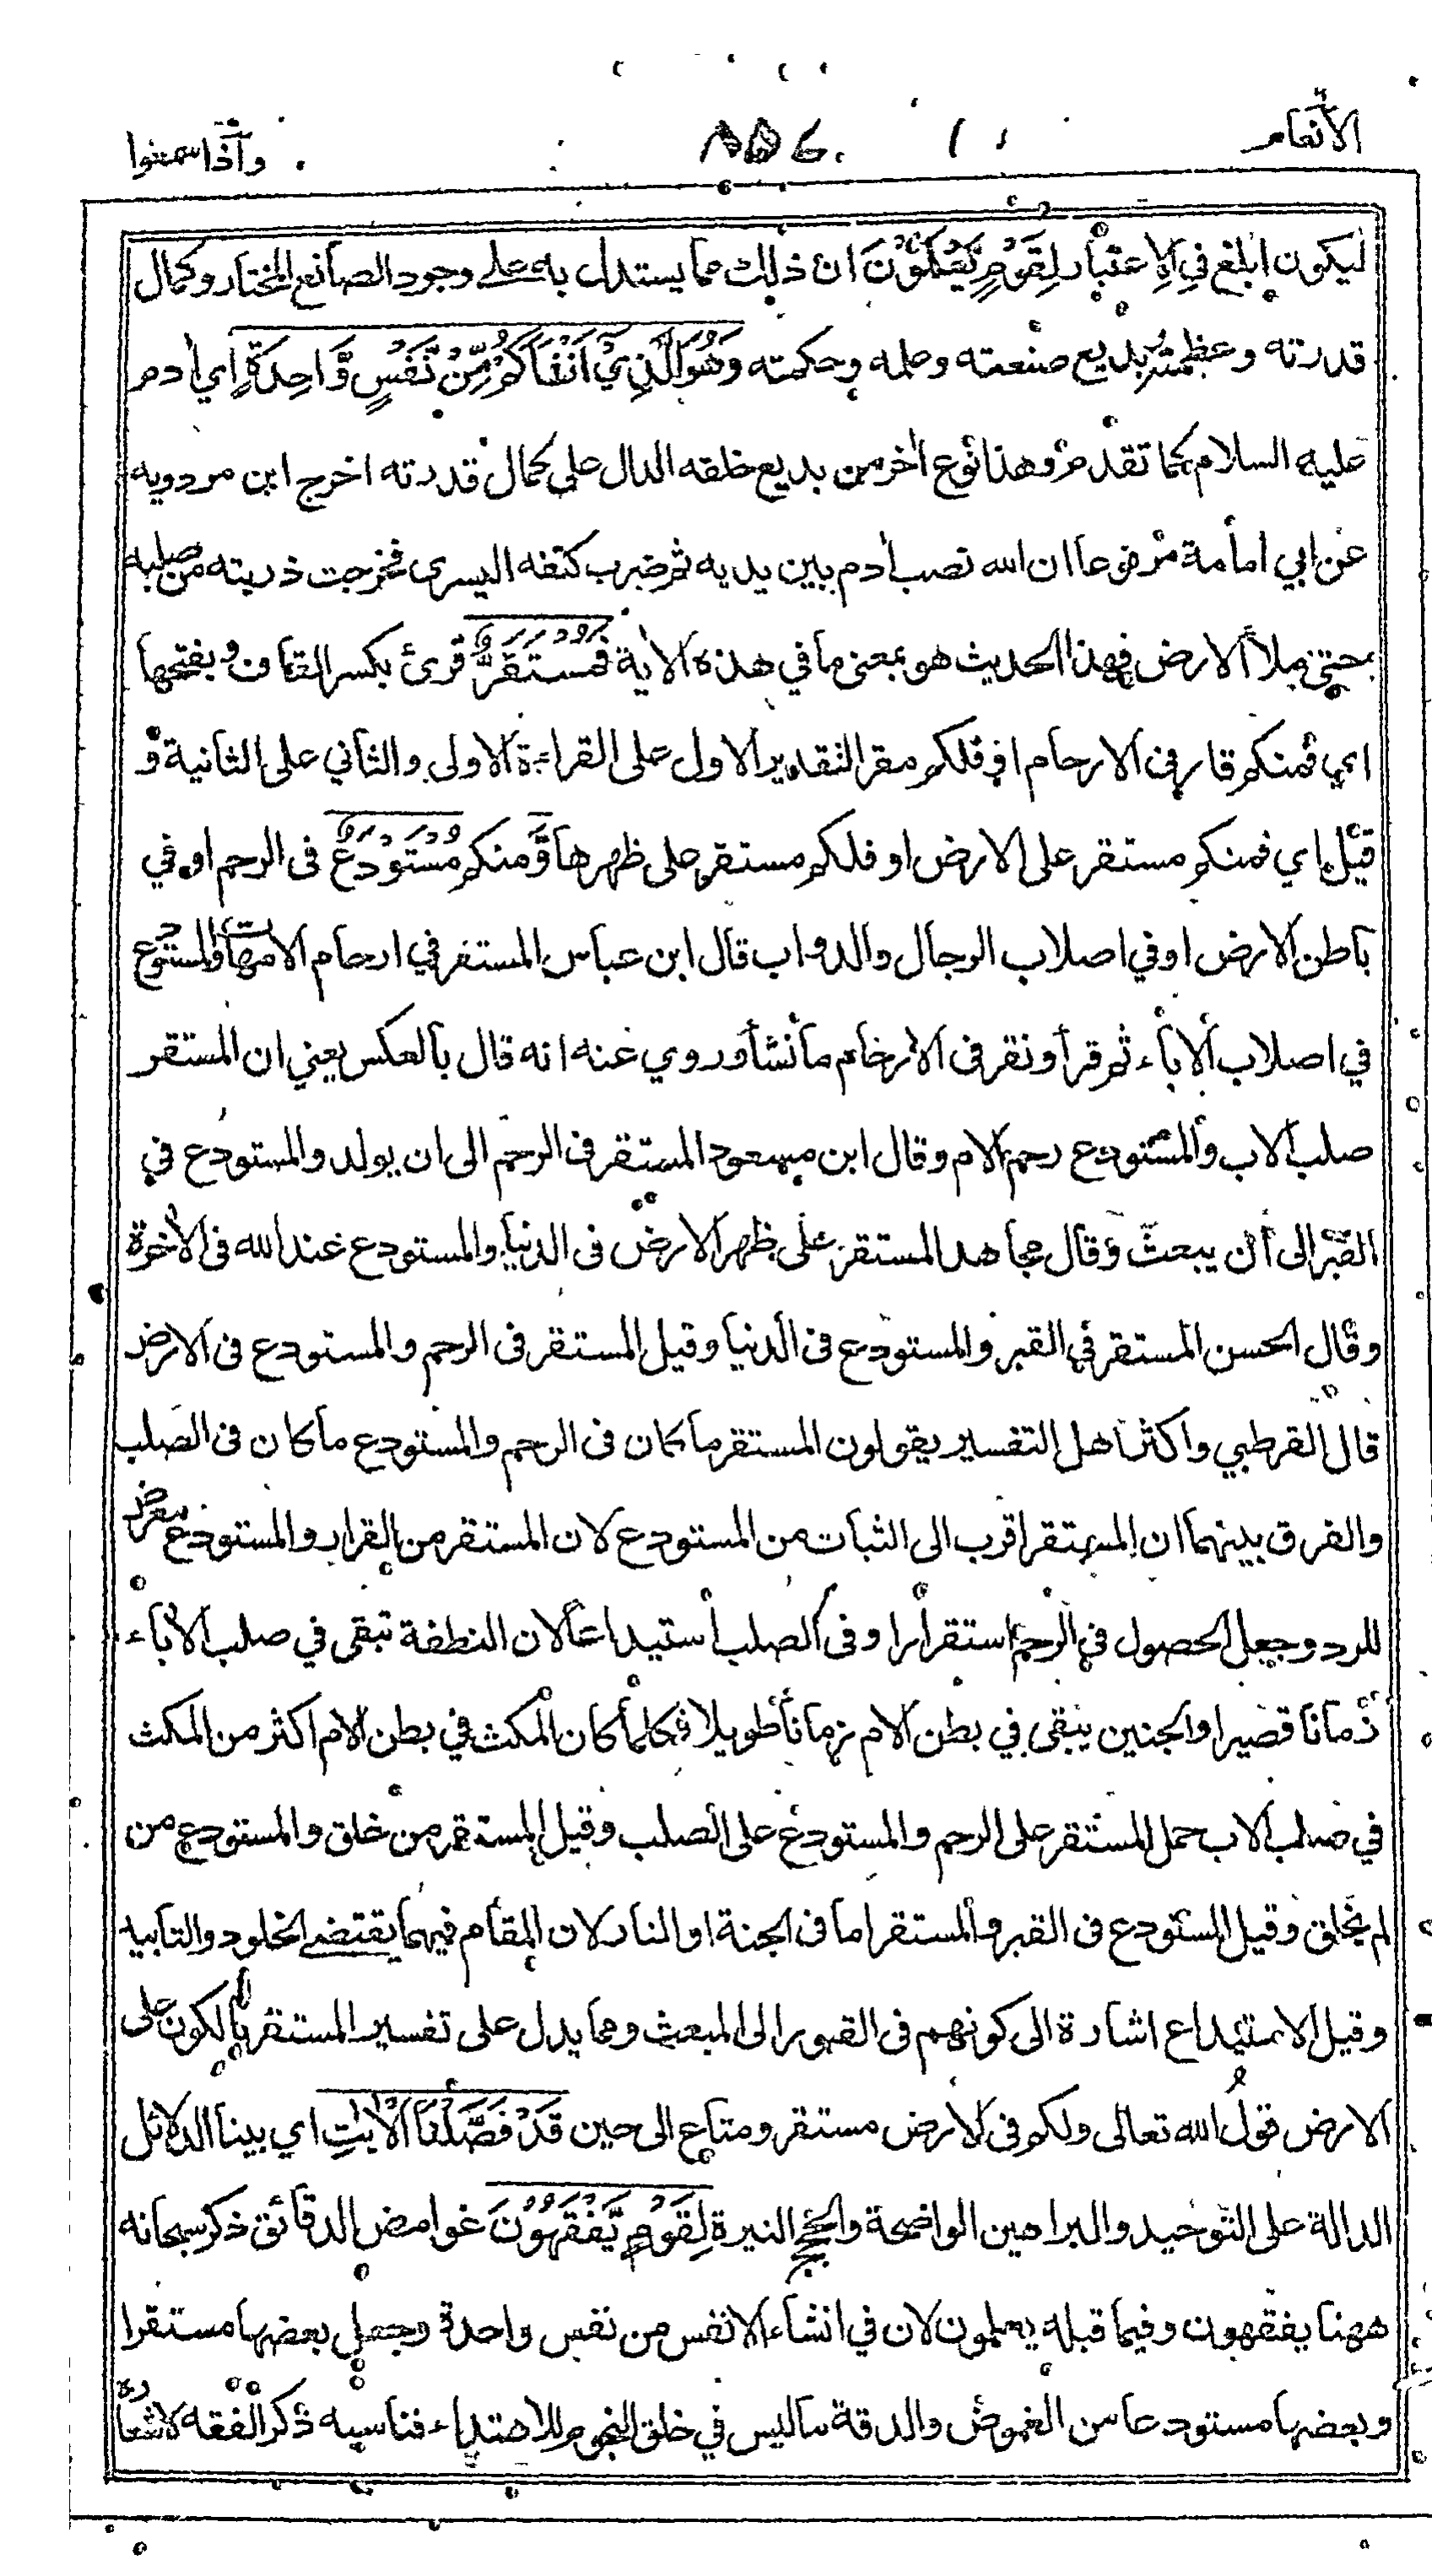 الأنعام
واذا سمعوا
ليكون ابلغ في الاعتبار لِقَوْمٍ يَّعْلَمُوْنَ ان ذلك مما يستدل به على وجود الصانع المختار وكمال
قدرته وعظمته بديع صنعته وعلمه وحكمته وَهُوَ الَّذِيْ اَنْشَاَكُمْ مِّنْ نَّفْسٍ وَّاحِدَةٍ اي ادم
عليه السلام كما تقدم وهذا نوع اخر من بديع خلقه الدال على كمال قدرته اخرج ابن مردويه
عن ابي امامة مرفوعا ان الله نصب ادم بين يديه ثم ضرب كتفه اليسرى فخرجت ذريته من صلبه
حتى ملأ الارض فهذا الحديث هو بمعنى ما في هذه الاية فَمُسْتَقَرٌّ قرئ بكسر القاف و بفتحها
اي فمنكم قار في الارحام او فلكم مقر التقدير الاول على القراءة الاولى والثاني على الثانية و
قيل اي فمنكم مستقر على الارض او فلكم مستقر على ظهرها وَّ منكم مُسْتَوْدَعٌ في الرحم او في
باطن الارض او في اصلاب الرجال والدواب قال ابن عباس المستقر في ارحام الامهات والمستودع
في اصلاب الاباء ثم قرأ ونقر في الارحام ما نشأ وروي عنه انه قال بالعكس يعني ان المستقر
صلب الاب والمستودع رحم الام وقال ابن مسعود المستقر في الرحم الى ان يولد والمستودع في
القبر الى ان يبعث وقال مجاهد المستقر على ظهر الارض في الدنيا والمستودع عند الله في الاخرة
وقال الحسن المستقر في القبر والمستودع في الدنيا وقيل المستقر في الرحم والمستودع في الارض
قال القرطبي واكثر اهل التفسير يقولون المستقر ما كان في الرحم والمستودع ما كان في الصلب
والفرق بينهما ان المستقر اقرب الى الثبات من المستودع لان المستقر من القرار والمستودع معرض
للرد وجعل الحصول في الرحم استقرارا وفي الصلب استيداعا لان النطفة تبقى في صلب الاباء
زمانا قصيرا والجنين يبقى في بطن الام زمانا طويلا فكلما كان المكث في بطن الام اكثر من المكث
في صلب الاب حمل المستقر على الرحم والمستودع على الصلب وقيل المستقر من خلق والمستودع من
لم يخلق وقيل المستودع في القبر والمستقر اما في الجنة او النار لان المقام فيهما يقتضي الخلود والتابيد
وقيل الاستيداع اشارة الى كونهم في القبور الى المبعث ومما يدل على تفسير المستقر بالكون على
الارض قول الله تعالى ولكم في الارض مستقر ومتاع الى حين قَدْ فَصَّلْنَا الْاٰيٰتِ اي بينا الدلائل
الدالة على التوحيد والبراهين الواضحة والحجج النيرة لِقَوْمٍ يَّفْقَهُوْنَ غوامض الدقائق ذكر سبحانه
ههنا يفقهون وفيما قبله يعلمون لان في انشاء الانفس من نفس واحدة وجعل بعضها مستقرا
وبعضها مستودعا من الغموض والدقة ما ليس في خلق النجوم للاهتداء فناسبه ذكر الفقه لاشعاره